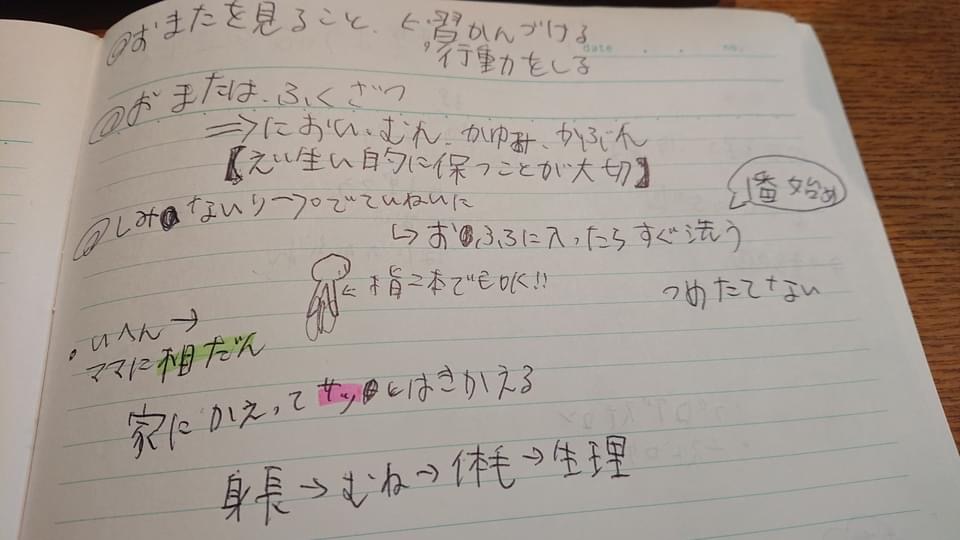 @おまたを見ること、← 習かんづける
行動をしる
date . . no.
@おまたは、ふくざつ
⇒におい、むれ、かゆみ、かぶれ
【えい生い的に保つことが大切】
@しみないソープでていねいに
1番始め
↳おふろに入ったらすぐ洗う
←指二本でもOK!!
つめたてない
・いへん→
ママに相だん
家にかえってサッとはきかえる
身長→むね→体毛→生理